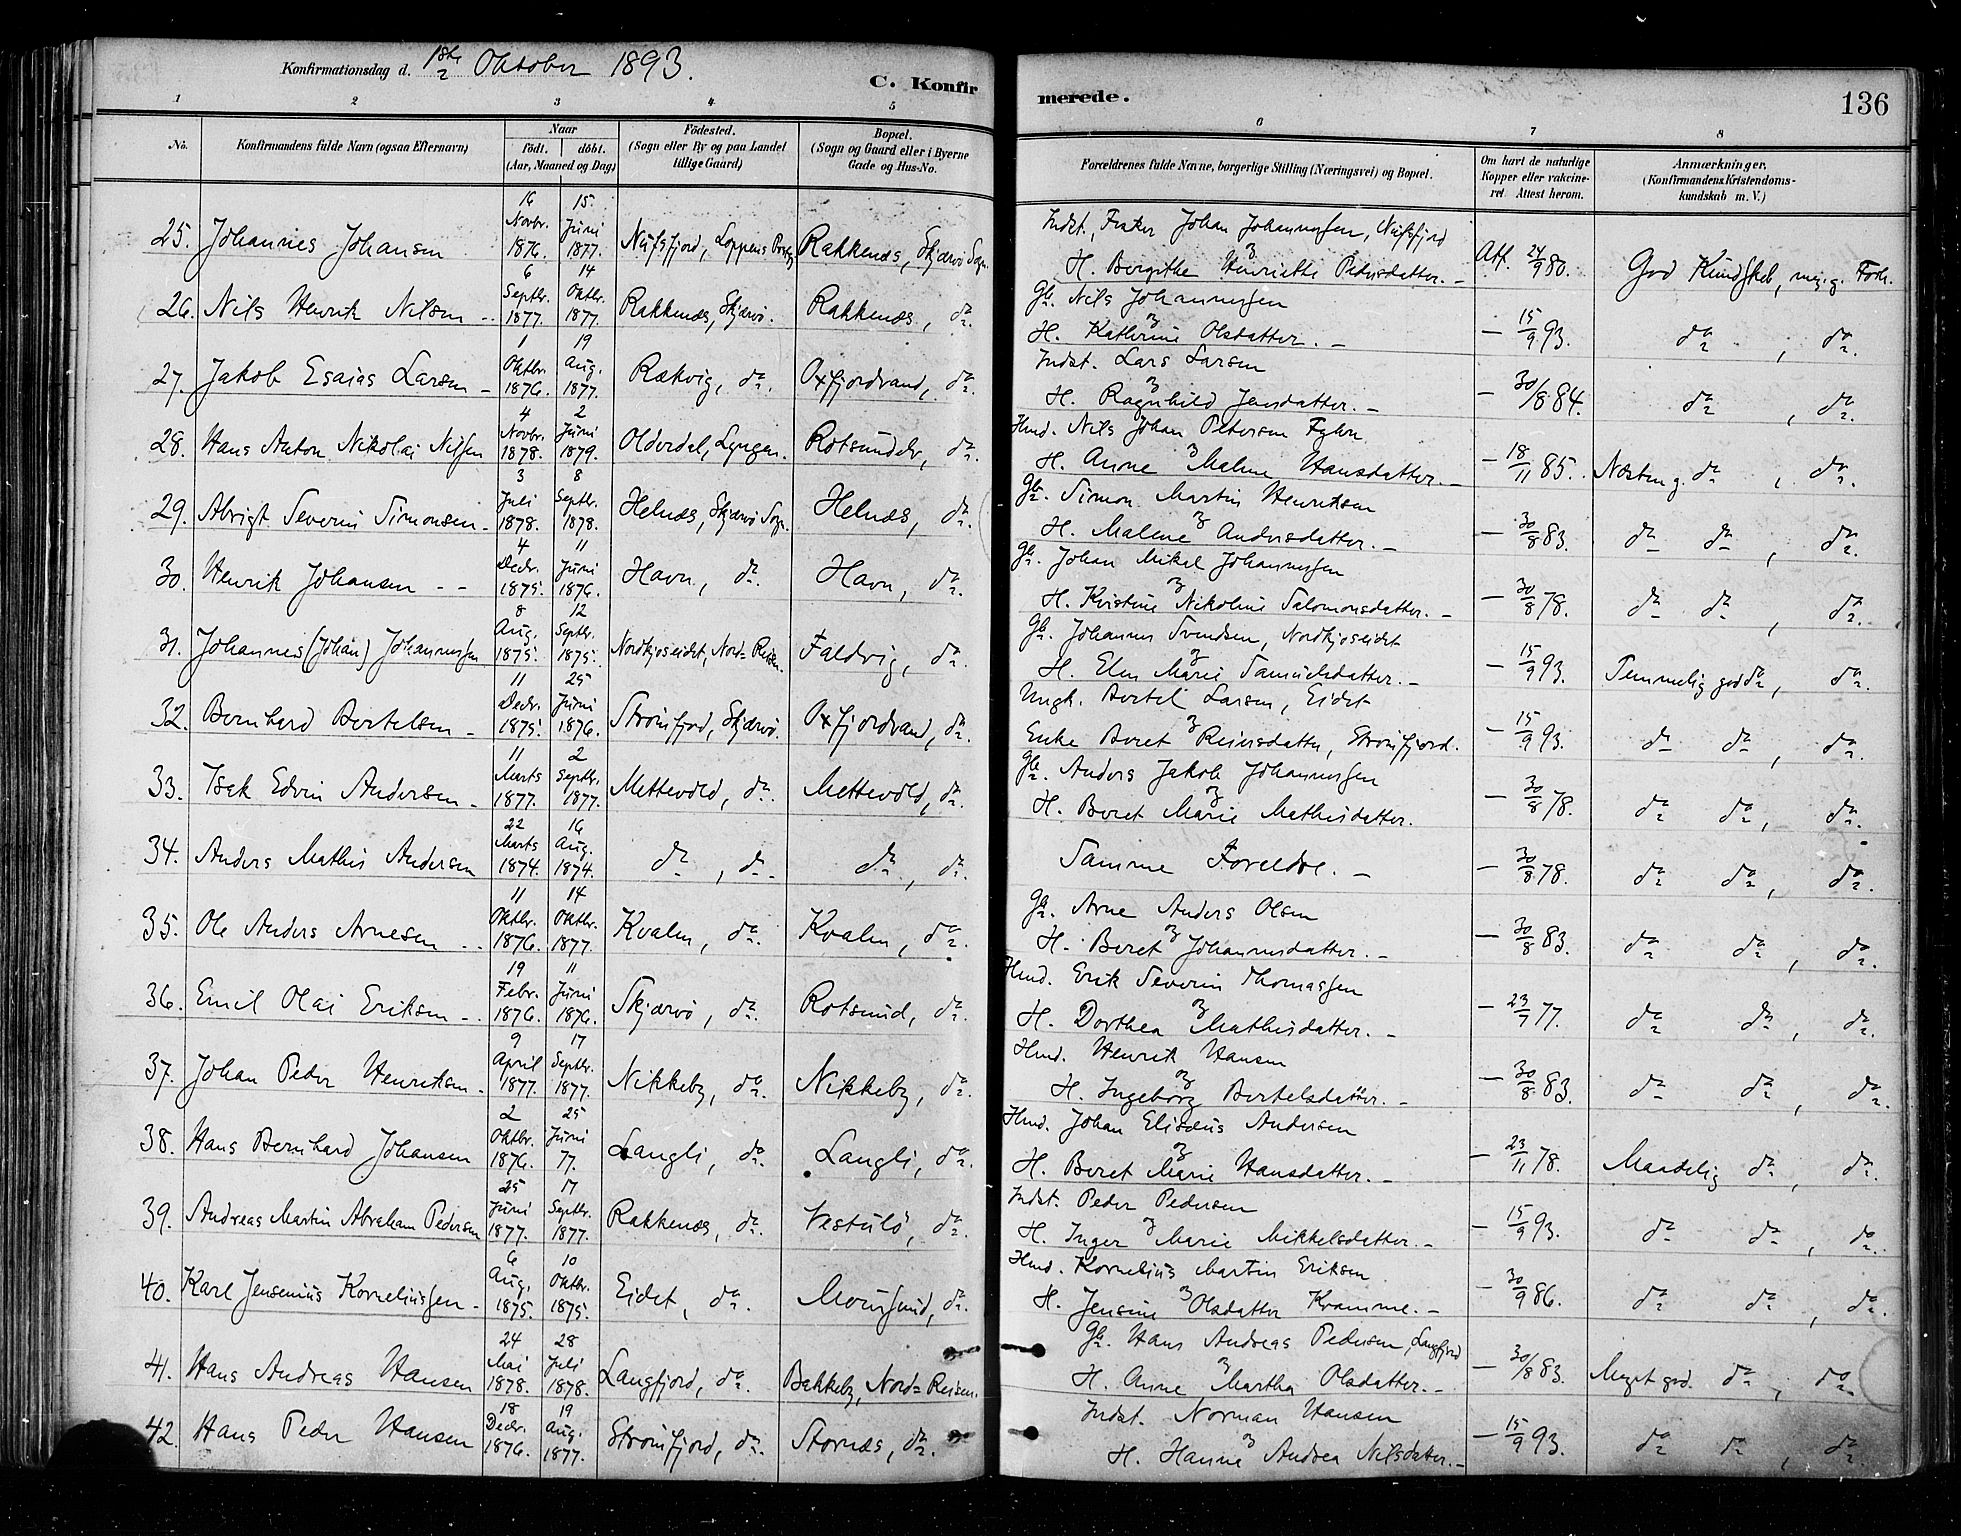 Konfirmationsdag d. 1ste Oktober 1893.
C. Konfirmerede.
136
1 2 3 4 5 6 7 8
No. Konfirmandens fulde Navn (ogsaa Efternavn) Naar Födt. döbt. (Aar, Maaned og Dag) Födested. (Sogn eller By og paa Landet tillige Gaard) Bopæl. (Sogn og Gaard eller i Byerne Gade og Hus-No. Forældrenes fulde Navne, borgerlige Stilling (Næringsvei) og Bopæl. Om havt de naturlige Kopper eller vakcineret. Attest herom. Anmærkninger. (Konfirmandens Kristendomskundskab m. V.)
25. Johannes Johansen 16 Novbr. 1876. 15 Juni 1877. Nufsfjord, Loppens Rakkenæs, Skjærvö Sogn. Indst., Johan Johannessen, Nufsfjord
H. Bergithe Henriette Pedersdatter. Att. 24/9 80. God Kundskab, meg. g. Forh.
26. Nils Henrik Nilsen 6 Septbr. 1877. 14 Oktbr. 1877. Rakkenæs, Skjærvö. Rakkenæs, do. Gb. Nils Johannessen
H. Kathrine Olsdatter. — 15/9 93. do, do.
27. Jakob Esaias Larsen 1 Oktbr. 1876. 19 Aug. 1877. Rækvig, do. Oxfjordvand, do. Indst. Lars Larsen
H. Ragnhild Jensdatter. — 30/8 84. do, do.
28. Hans Anton Nikolai Nilsen 4 Novbr. 1878. 2 Juni 1879. Olderdal, Lyngen. Rotsundelv, do. Hmd. Nils Johan Petersen
H. Anne Malene Hansdatter. — 18/11 85. Næsten g. do, do.
29. Abrigt Severin Simonsen 3 Juli 1878. 8 Septbr. 1878. Helnæs, Skjærvö Sogn. Helnæs, do. Gb. Simon Martin Henriksen
H. Malene Andersdatter. — 30/8 83. do do, do.
30. Henrik Johansen 4 Decbr. 1875. 11 Juni 1876. Havn, do. Havn, do. Gb. Johan Mikal Johannessen
H. Kristine Nikoline Salomonsdatter. — 30/8 78. do do, do.
31. Johannes (Johan) Johannessen 8 Aug. 1875. 12 Septbr. 1875. Nordkjoseidet, Nord-Reisen. Faldvig, do. Gb. Johannes Svendsen, Nordkjoseidet
H. Elen Marie Samuelsdatter. — 15/9 93. Temmelig god do, do.
32. Bernhard Bertelsen 11 Decbr. 1875. 25 Juni 1876. Strömfjord, Skjærvö. Oxfjordvand, do. Ungk. Bertel Larsen, Eidet
Enke Beret Reiersdatter, Strömfjord. — 15/9 93. do do, do.
33. Isak Edvin Andersen 11 Marts 1877. 2 Septbr. 1877. Mettevold, do. Mettevold, do. Gb. Anders Jakob Johannessen
H. Beret Marie Mathisdatter. — 30/8 78. do do, do.
34. Anders Mathis Andersen 22 Marts 1874. 16 Aug. 1874. do, do. do, do. Samme Foreldre. — 30/8 78. do do, do.
35. Ole Anders Arnesen 11 Oktbr. 1876. 14 Oktbr. 1877. Kvalen, do. Kvalen, do. Gb. Arne Anders Olsen
H. Beret Johannesdatter. — 30/8 83. do do, do.
36. Emil Olai Eriksen 19 Febr. 1876. 11 Juni 1876. Skjærvö, do. Rotsund, do. Hmd. Erik Severin Thomassen
H. Dorthea Mathisdatter. — 23/7 77. do do, do.
37. Johan Peder Henriksen 9 April 1877. 17 Septbr. 1877. Nikkeby, do. Nikkeby, do. Hmd. Henrik Hansen
H. Ingeborg Bertelsdatter. — 30/8 83. do do, do.
38. Hans Bernhard Johansen 2 Oktbr. 1876. 25 Juni 77. Langli, do. Langli, do. Hmd. Johan Elisæus Andersen
H. Beret Marie Hansdatter. — 23/11 78. Maadelig do, do.
39. Andreas Martin Abraham Pedersen 25 Juni 1877. 17 Septbr. 1877. Rakkenæs, do. Vestulö, do. Indst. Peder Pedersen
H. Inger Marie Mikkelsdatter. — 15/9 93. do do, do.
40. Karl Jensenius Korneliussen 6 Aug. 1875. 10 Oktbr. 1875. Eidet, do. Maursund, do. Hmd. Kornelius Martin Eriksen
H. Jensine Olsdatter Kramme. — 30/9 86. do do, do.
41. Hans Andreas Hansen 24 Mai 1878. 28 Juli 1878. Langfjord, do. Bakkeby, Nord-Reisen. Gb. Hans Andreas Pedersen, Langfjord
H. Anne Martha Olsdatter. — 30/8 83. Meget god. do, do.
42. Hans Peder Hansen 18 Decbr. 1876. 19 Aug. 1877. Strömfjord, do. Stornæs, do. Indst. Norman Hansen
H. Hanne Andrea Nilsdatter. — 15/9 93. do do, do.